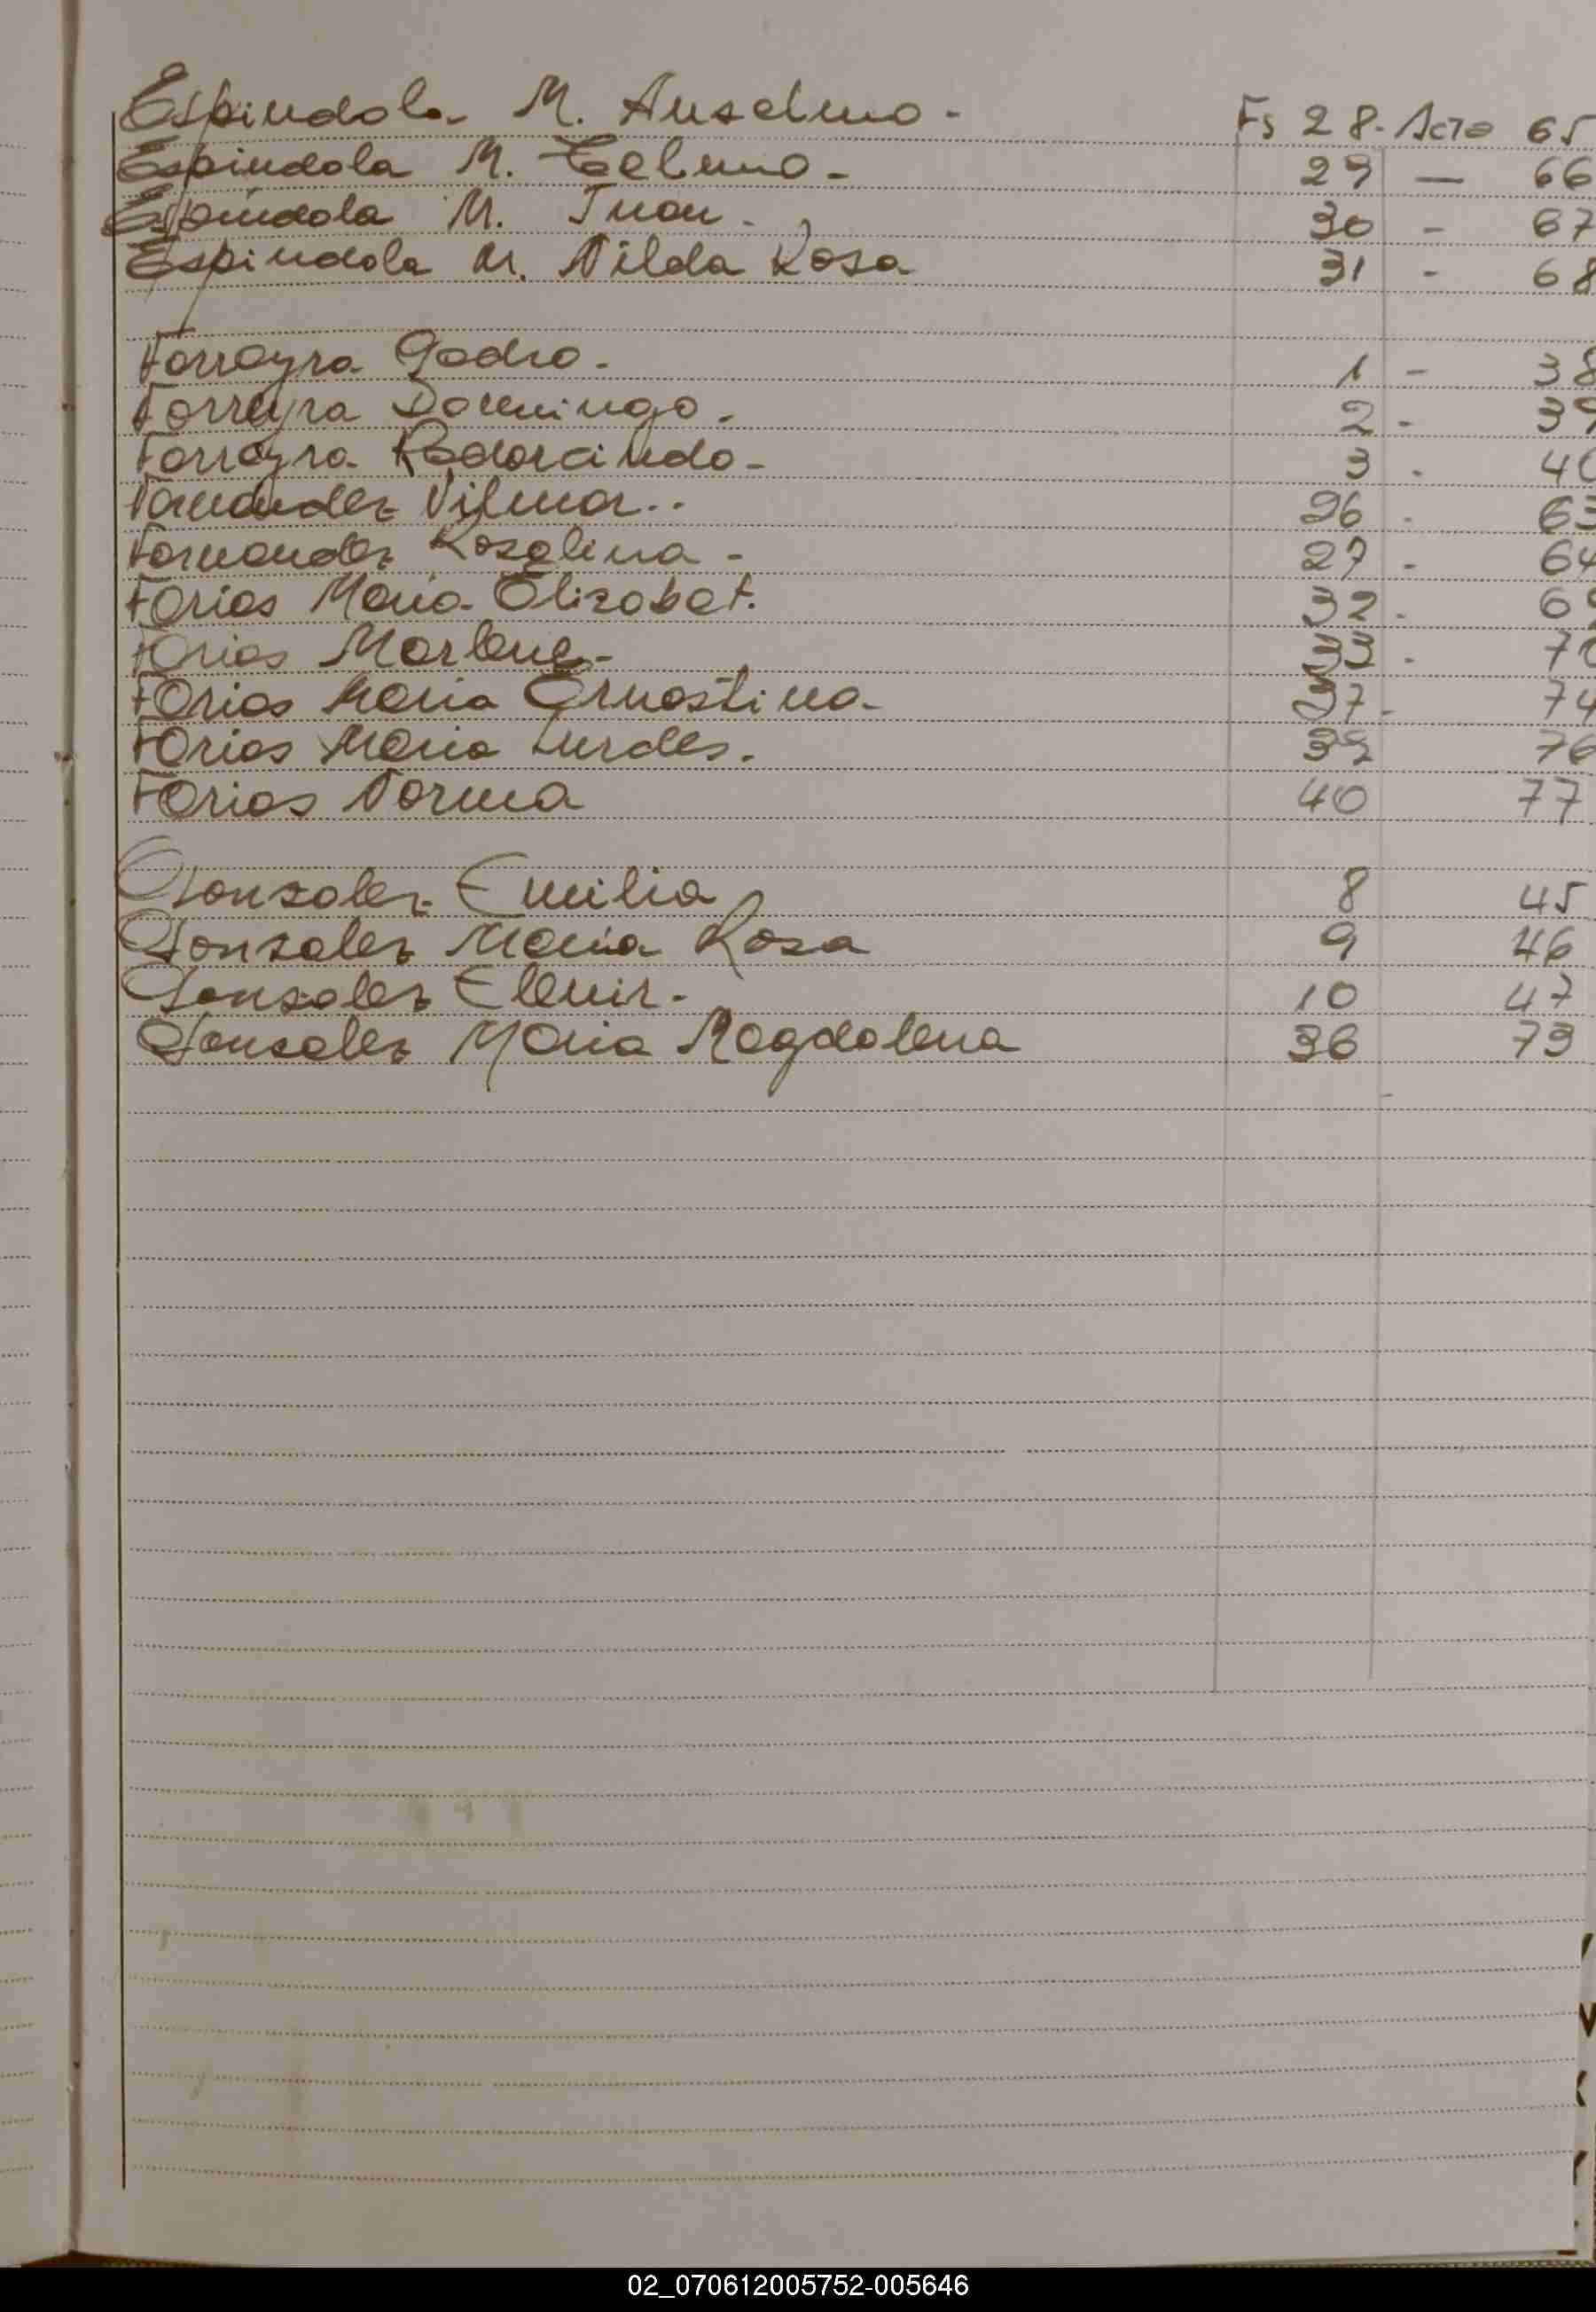 Espindola M. Anselmo - Fs 28 - Acta 65
Espindola M. Telmo - 29 — 66
Espindola M. Juan - 30 - 67
Espindola M. Nilda Rosa 31 - 68
Ferreyra Pedro - 1 - 38
Ferreyra Domingo - 2 - 39
Ferreyra - 3 -
Fernandez Vilmar.. 26 - 63
Fernandez Rosalina - 27 - 64
Farias Maria Elizabet. 32 - 69
Farias Marlene - 33 - 70
Farias Maria Ernestina - 37 - 74
Farias Maria Lurdes. 39 76
Farias Norma 40 77
Gonzalez Emilia 8 45
Gonzalez Maria Rosa 9 46
Gonzalez Elenir - 10 47
Gonzalez Maria Magdalena 36 73
02_070612005752-005646